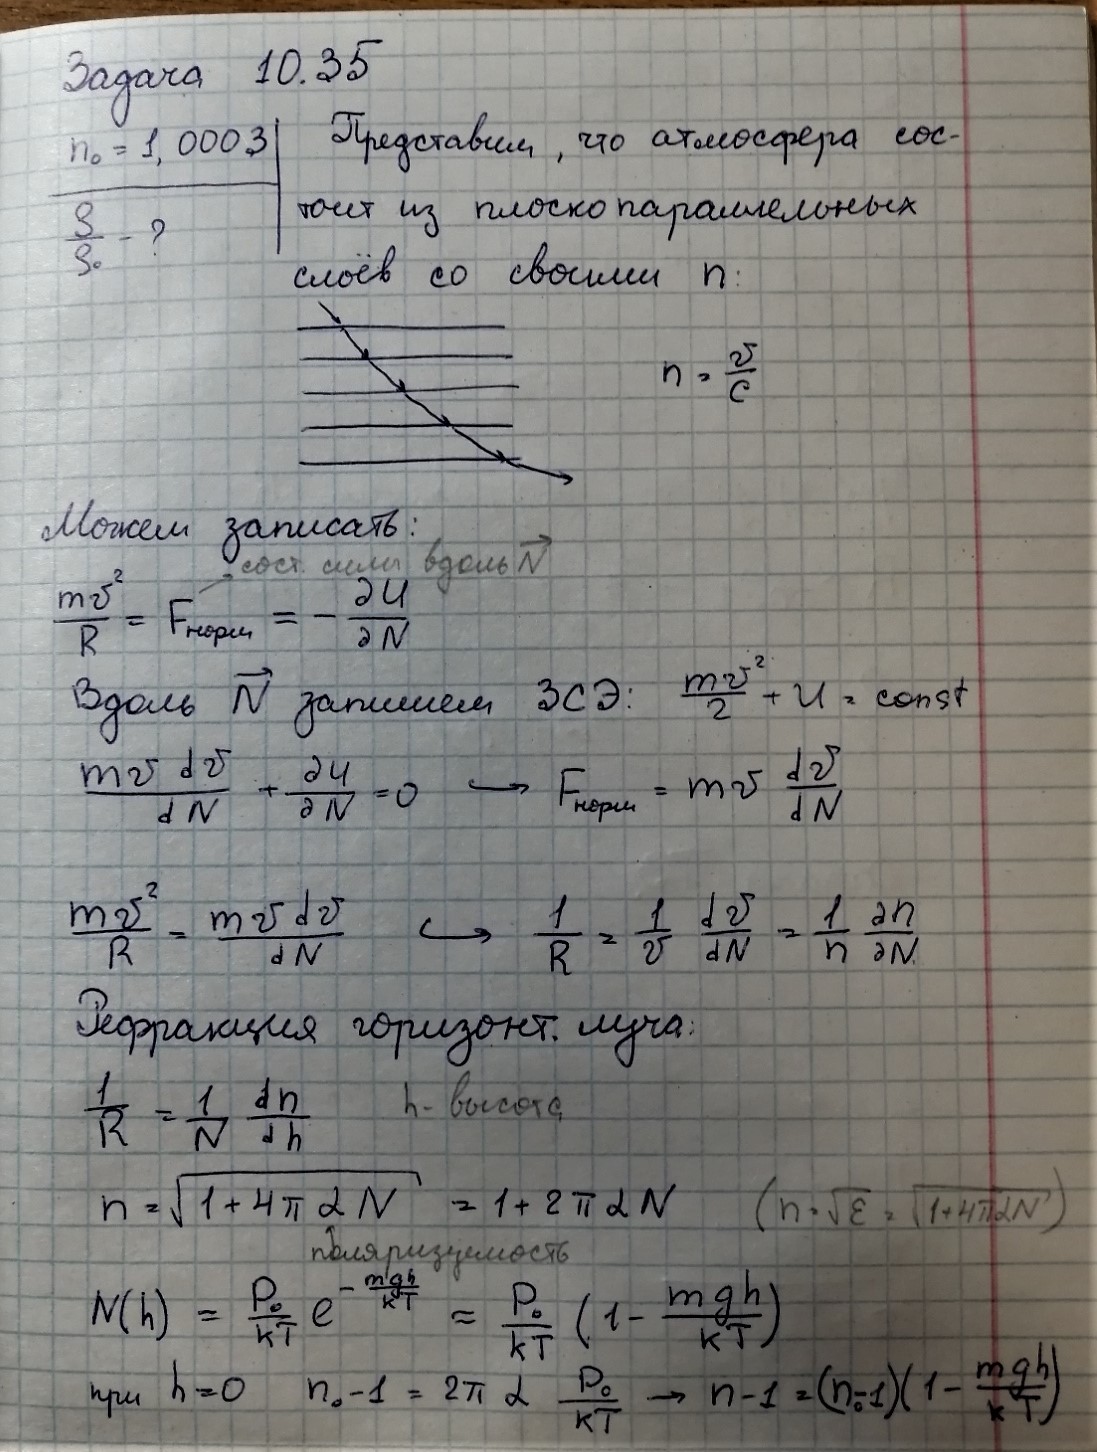 Задача 10.35
n₀ = 1,0003
ρ/ρ₀ - ?
Представим, что атмосфера сос-
тоит из плоскопараллельных
слоёв со своими n:
n = v/c
Можем записать:
сост. силы вдоль N⃗
mv²/R = Fнорм = - ∂U/∂N
Вдоль N⃗ запишем ЗСЭ: mv²/2 + U = const
mv dv/dN + ∂U/∂N = 0 → Fнорм = mv dv/dN
mv²/R = mv dv/dN → 1/R = 1/v dv/dN = 1/n ∂n/∂N
Рефракция горизонт. луча:
1/R = 1/N dn/dh h - высота
n = √(1+4παN) = 1+2παN (n = √ε = √(1+4παN))
поляризуемость
N(h) = P₀/kT e^(-mgh/kT) ≈ P₀/kT (1 - mgh/kT)
при h=0 n₀-1 = 2πα P₀/kT → n-1 = (n₀-1)(1 - mgh/kT)